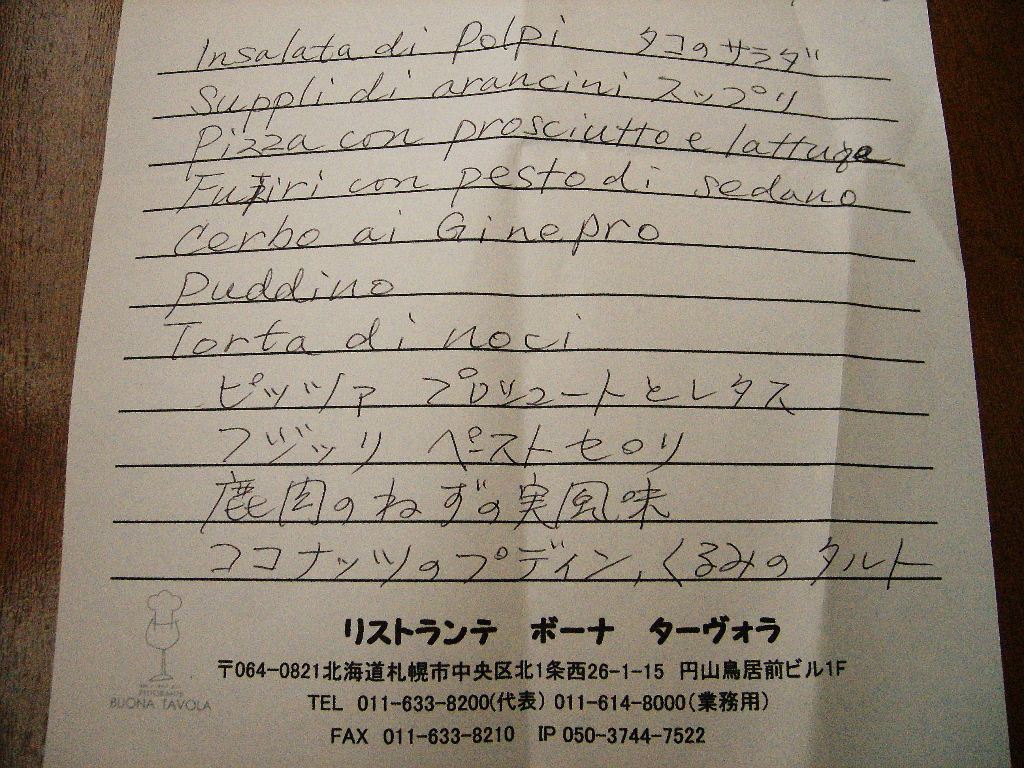 Insalata di polpi タコのサラダ
Suppli di arancini スップリ
Pizza con prosciutto e lattuga
con pesto di sedano
Cerbo ai Ginepro
Puddino
Torta di noci
ピッツァ プロシュートとレタス
フジッリ ペーストセロリ
鹿肉のねずの実風味
ココナッツのプディン,くるみのタルト
リストランテ ボーナ ターヴォラ
〒064-0821北海道札幌市中央区北1条西26-1-15 円山鳥居前ビル1F
TEL 011-633-8200(代表) 011-614-8000(業務用)
FAX 011-633-8210 IP 050-3744-7522
BUONA TAVOLA